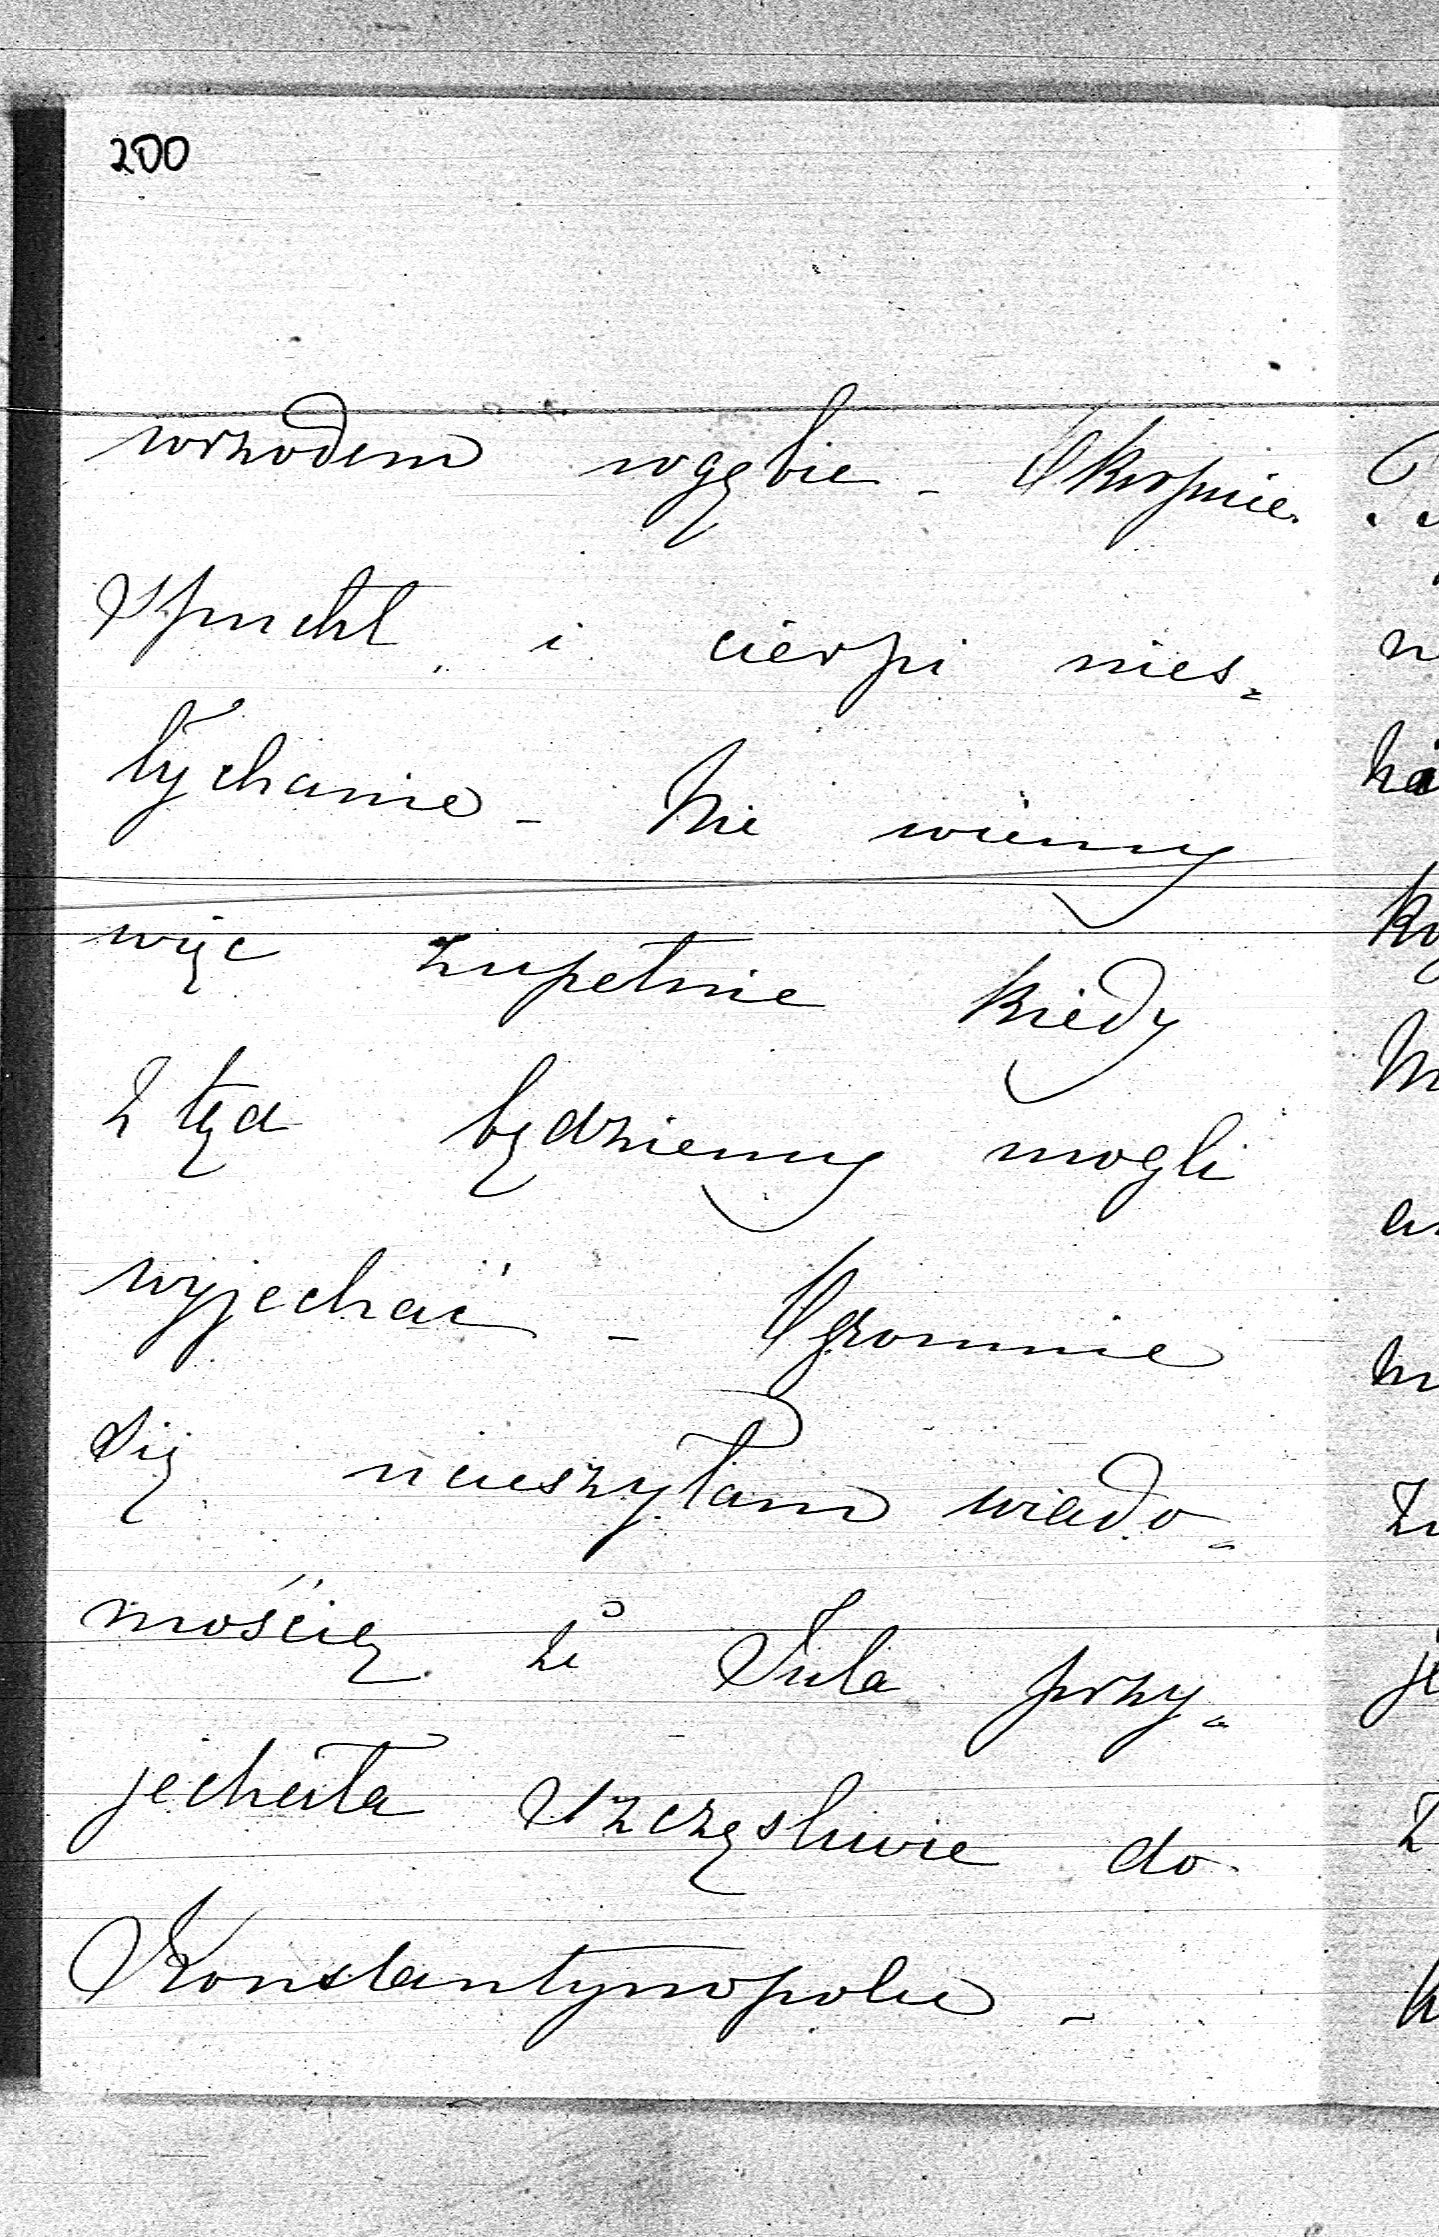 200
wrzodem w gębie - Okropnie
spuchł, i cierpi nies=
łychanie - Nie wiemy
więc zupełnie kiedy
ztąd będziemy mogli
wyjechać - Ogromnie
się ucieszyłam wiado=
mością że Jula przy=
jechała szczęśliwie do
Konstantynopolu -